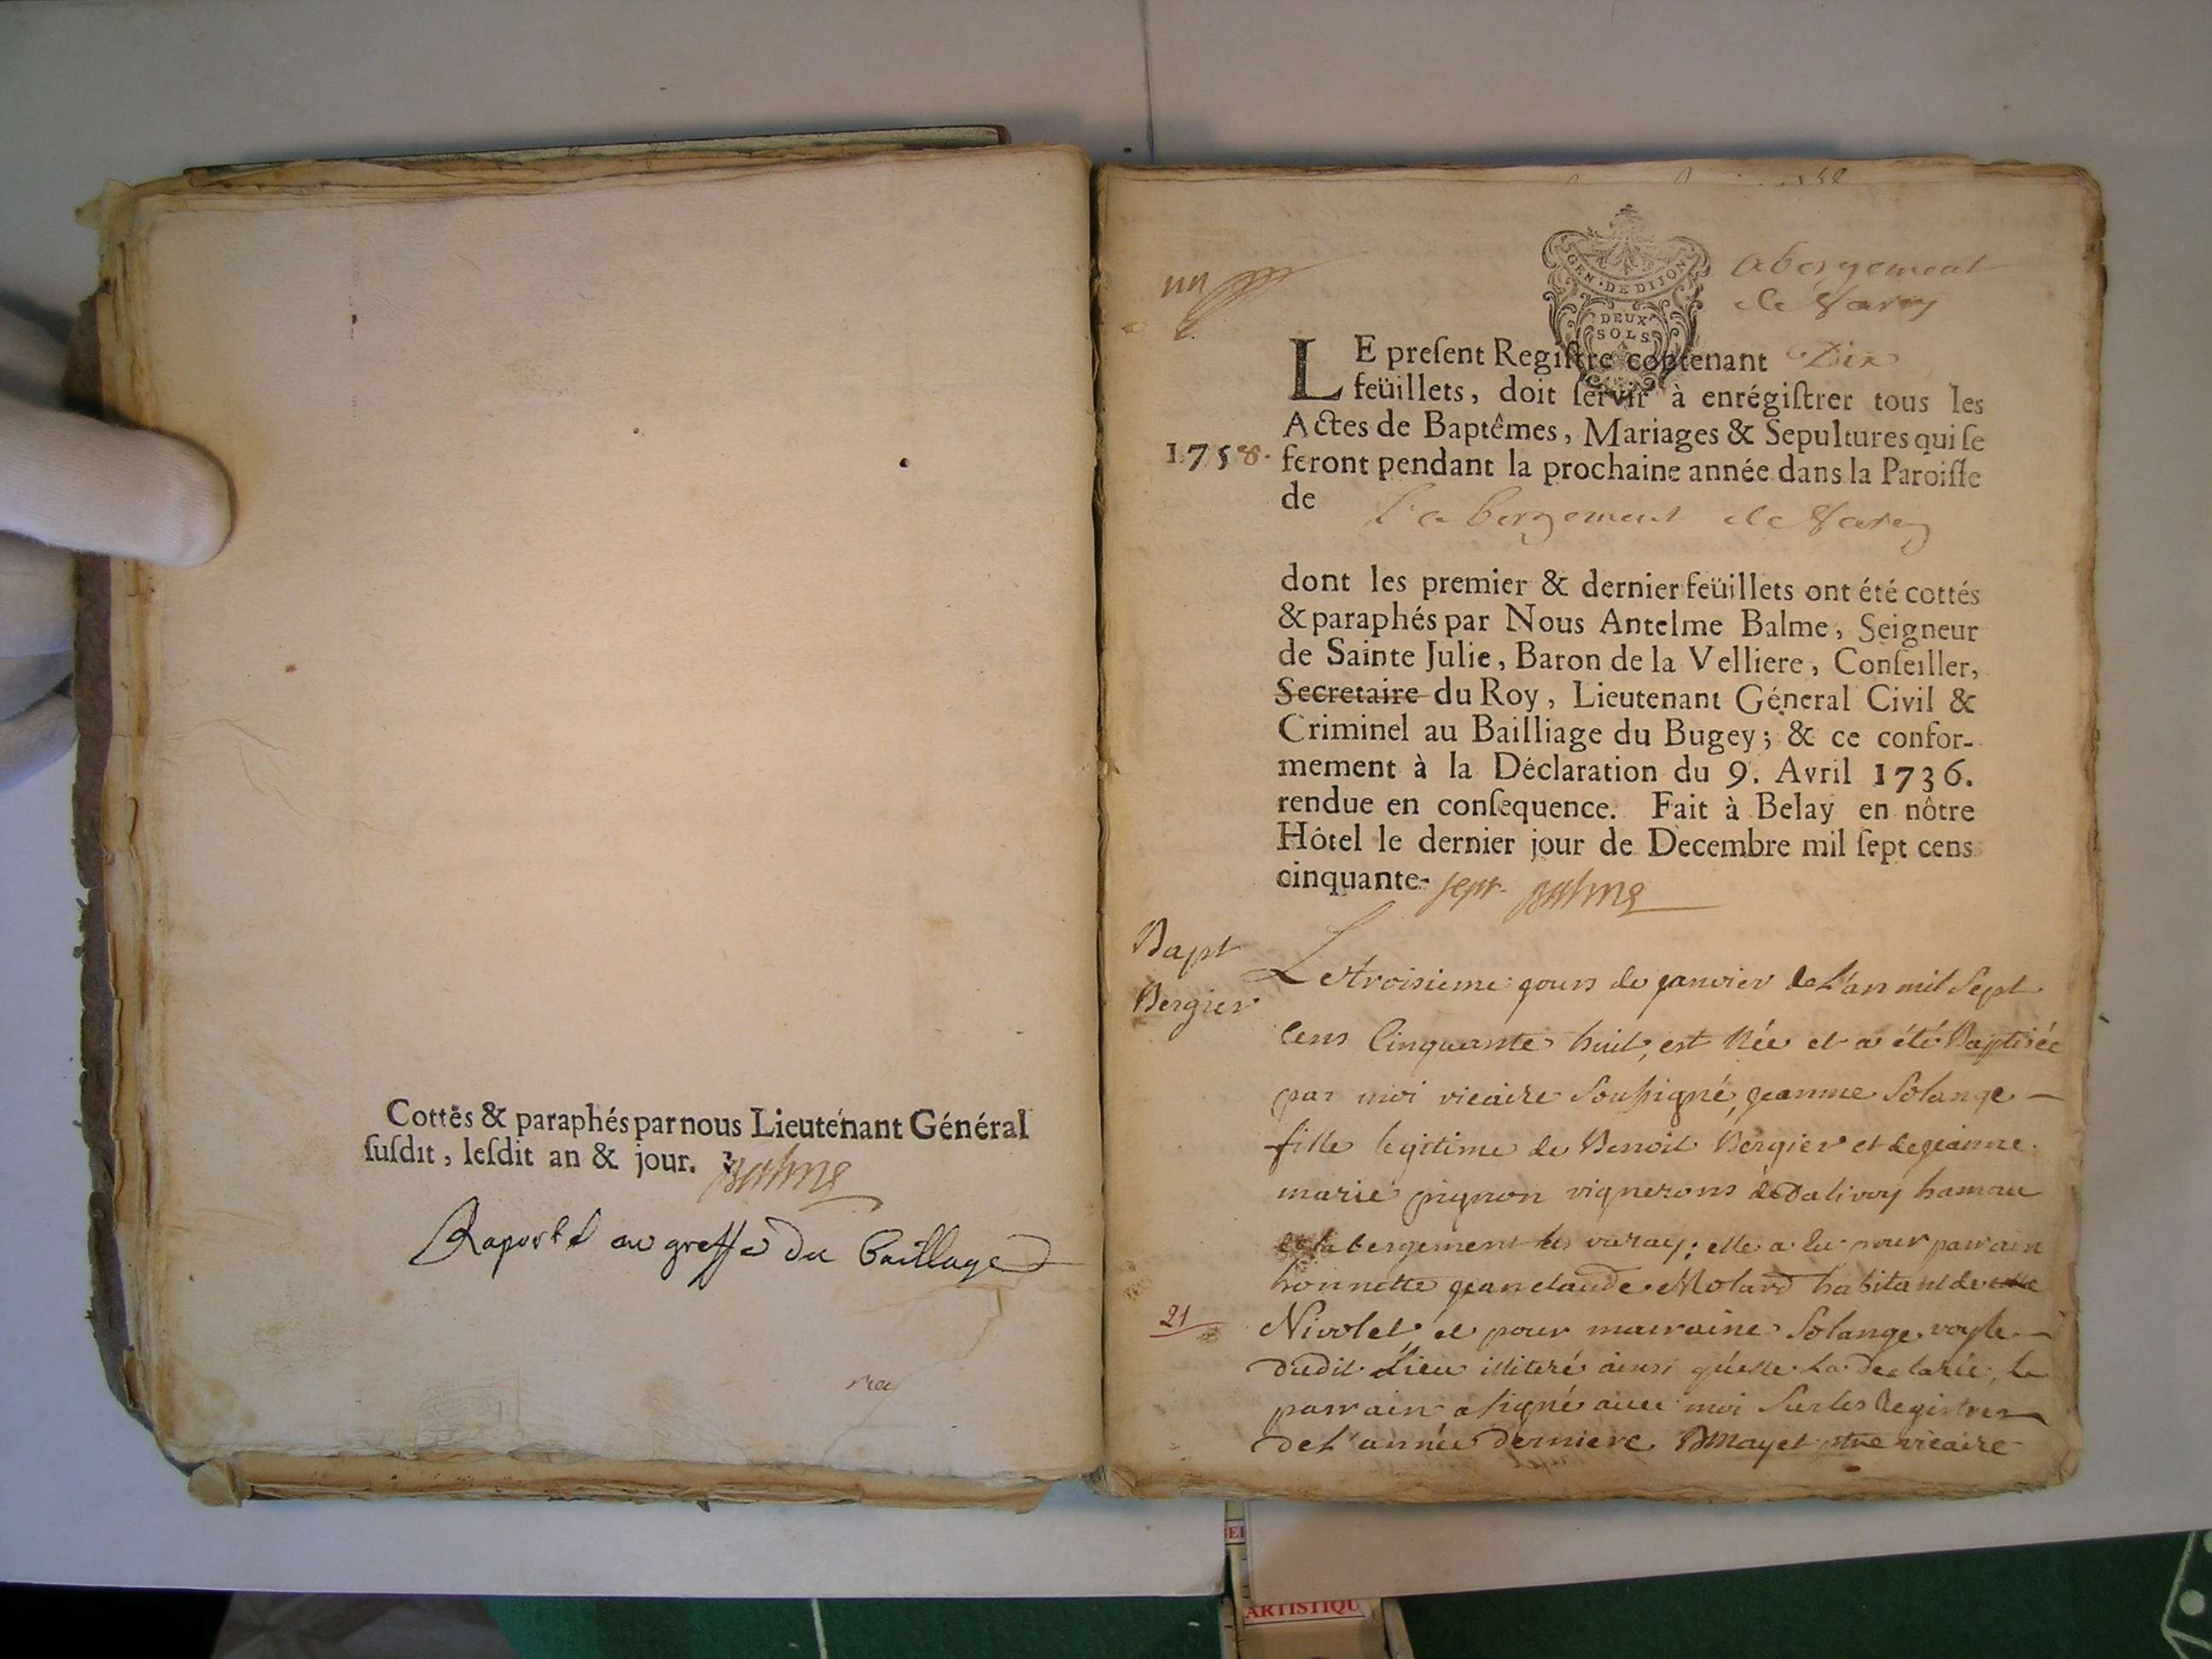 Cottés & paraphés par nous Lieutenant Général
susdit, lesdit an & jour. Balme
Raporté au greffe du Baillage
un
GEN · DE DIJON
DEUX
SOLS
abergement
de Varey
LE present Registre contenant Dix
feüillets, doit servir à enrégistrer tous les
Actes de Baptêmes, Mariages & Sepultures qui se
1758. feront pendant la prochaine année dans la Paroisse
de L'abergement de Varey
dont les premier & dernier feüillets ont été cottés
& paraphés par Nous Antelme Balme, Seigneur
de Sainte Julie, Baron de la Velliere, Conseiller,
Secretaire du Roy, Lieutenant Géneral Civil &
Criminel au Bailliage du Bugey; & ce confor-
mement à la Déclaration du 9. Avril 1736.
rendue en consequence. Fait à Belay en nôtre
Hôtel le dernier jour de Decembre mil sept cens
cinquante-sept. Balme
Bapt
Bergier
Le troisieme jours de janvier de L'an mil Sept
Cens Cinquante huit, est Née et a été Baptisée
par moi vicaire Soussigné, jeanne Solange
fille legitime de Benoit Bergier et de jeanne
marie pignon vignerons de Dalivoy hamau
labergement les varay; elle a Eu pour parrain
honnette jean claude Molard habitant de
21
Nivolet, et pour marraine Solange voyle
dudit Lieu illiteré ainsi qu'elle La declarée, le
parrain a signé avec moi Sur les Registres
de L'année derniere. BMayet ptre vicaire
ARTISTIQU